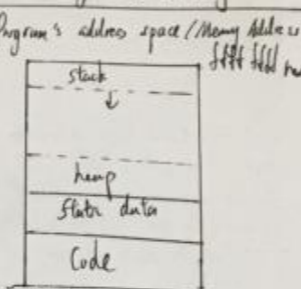 Program's address space/Memory Address
ffff ffff hex
stack
heap
static data
Code